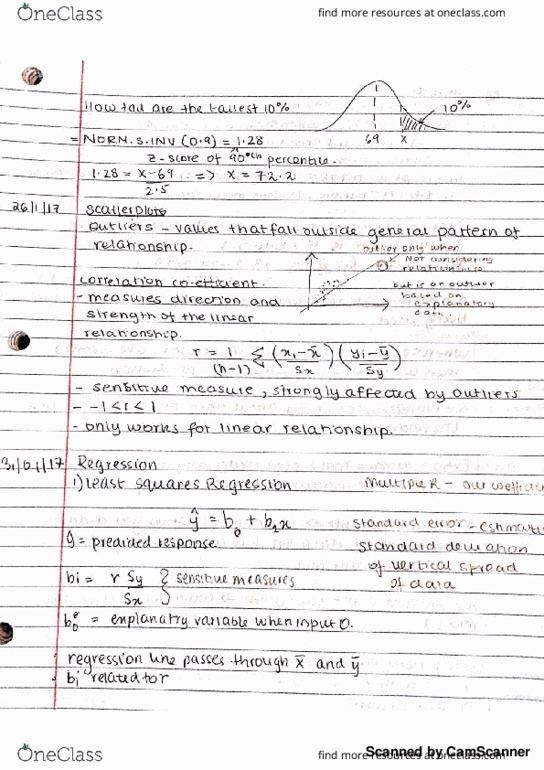 OneClass
find more resources at oneclass.com
How tall are the tallest 10%
10%
69 x
= NORM.S.INV (0.9) = 1.28
z-score of 90th percentile.
1.28 = x-69 => x = 72.2
2.5
26/1/17 Scatterplots
Outliers - values that fall outside general pattern of
relationship.
outlier only when
Not considering
relationship
but is an outlier
based on
explanatory
data
Correlation co-efficient.
- measures direction and
strength of the linear
relationship.
r = 1/(n-1) Σ (xi - x̄ / Sx) (yi - ȳ / Sy)
- sensitive measure, strongly affected by outliers
- -1 < r < 1
- only works for linear relationship.
31/01/17 Regression
1) least squares Regression
Multiple R - our coefficien
ŷ = b0 + b1x
ŷ = predicted response
standard error - estimat
standard deviation
of vertical spread
of data
bi = r Sy } sensitive measures
Sx
b0 = explanatry variable when input 0.
regression line passes through x̄ and ȳ
bi related to r
Scanned by CamScanner
OneClass
find more resources at oneclass.com